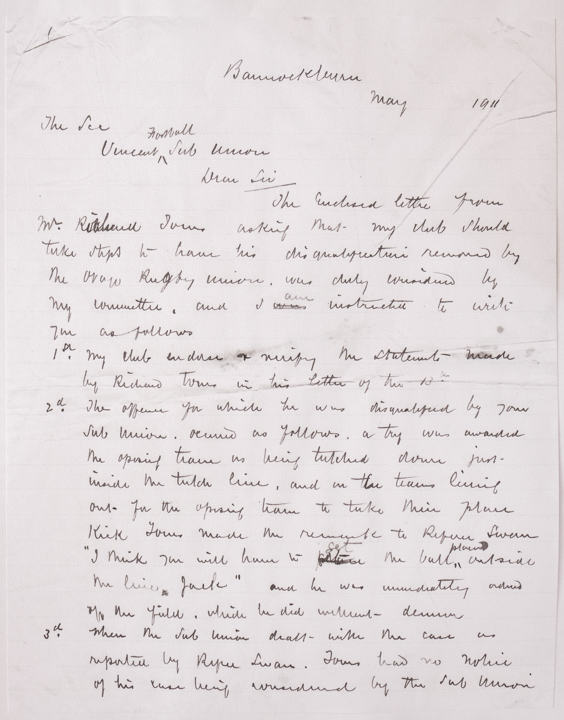 1
Bannockburn
May 1911
The Sec
Football
Vincent ^ Sub Union
Dear Sir
The Enclosed letter from
Mr. Richard Toms asking that my club should
take steps to have his disqualification removed by
the Otago Rugby Union, was duly considered by
my committee, and I am instructed to write
you as follows
1st. My club endorse & verify the statements made
by Richard Toms in his letter of the 13th
2d. The offence for which he was disqualified by your
Sub Union, occured as follows, a try was awarded
the opposing team as being tutched down just
inside the tutch line, and on the teams lining
out for the opposing team to take their place
Kick Toms made the remark to Referee Swan
"I think you will have to get the ball placed ^ outside
the line, Jack" and he was immediately ordered
off the field, which he did without demur
3d. When the Sub Union dealt with the case as
reported by Referee Swan. Toms had no notice
of his case being considered by the Sub Union